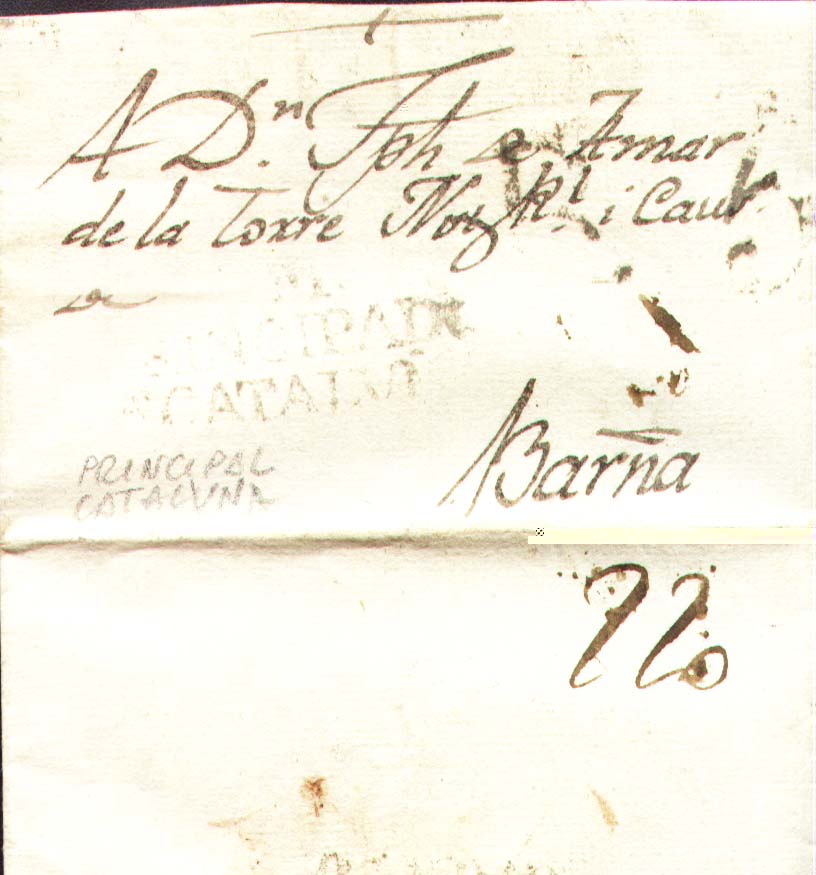 A D.n Jph de Amar
de la Torre Not R.l i Caus.
PRINCIPADO
CATALU
PRINCIPAL
CATALUNA
Barña